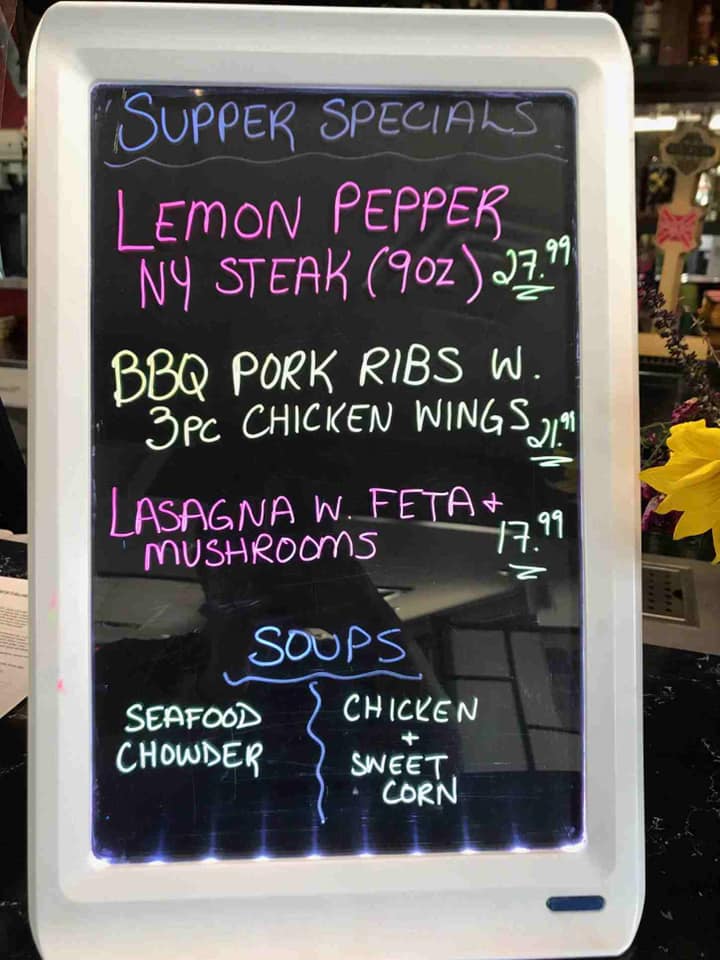 SUPPER SPECIALS
LEMON PEPPER
NY STEAK (9OZ) 27.99
BBQ PORK RIBS W.
3PC CHICKEN WINGS 21.99
LASAGNA W. FETA +
MUSHROOMS 17.99
SOUPS
SEAFOOD
CHOWDER
CHICKEN
+
SWEET
CORN